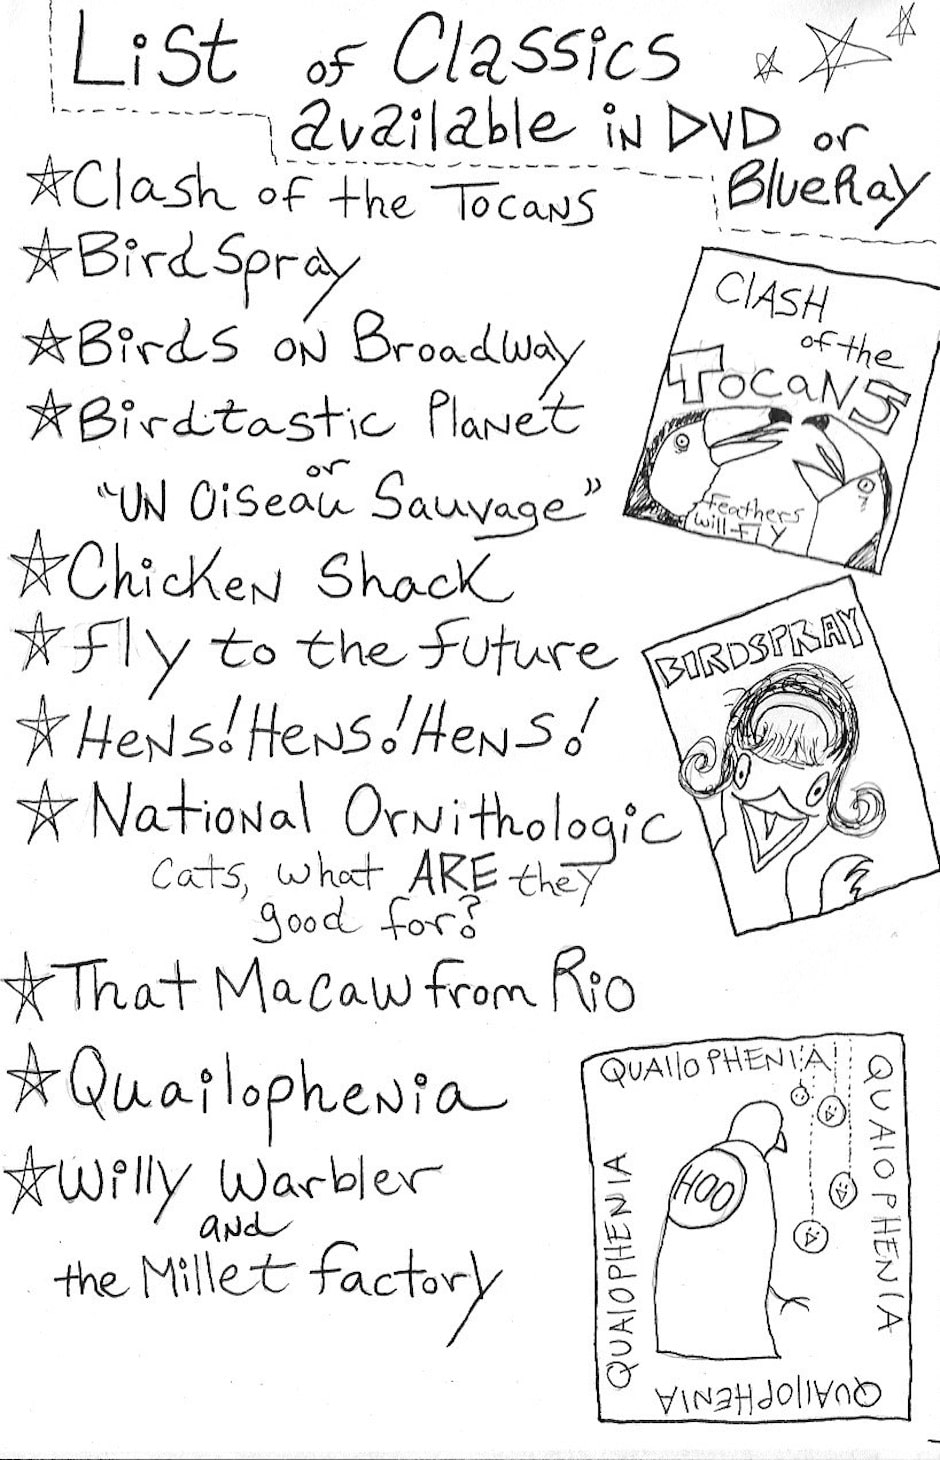 List of Classics
available in DVD or
BlueRay
Clash of the Tocans
BirdSpray
Birds on Broadway
Birdtastic Planet
or
"UN Oiseau Sauvage"
Chicken Shack
Fly to the Future
Hens! Hens! Hens!
National Ornithologic
Cats, what ARE they
good for?
That Macaw from Rio
Quailophenia
Willy Warbler
and
the Millet Factory
CLASH
of the
Tocans
Feathers
will Fly
BIRDSPRAY
QUAIlOPHENIA
QUAIOPHENIA
HOO
QUAIOPHENIA
QUAIlOPHENIA